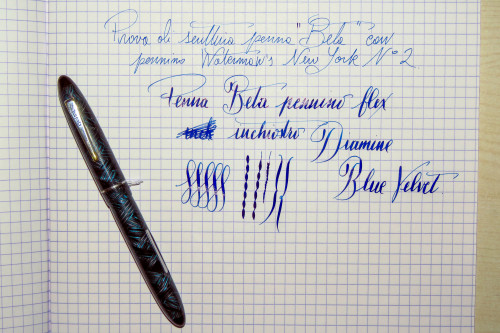 Prova di scrittura penna "Beta" con
pennino Waterman's New York N° 2
Penna Beta pennino flex
inchiostro Diamine
Blue Velvet